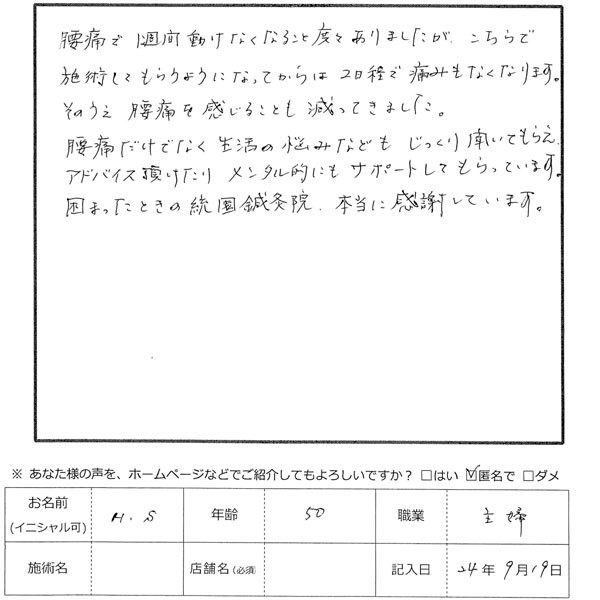 腰痛で1週間動けなくなること度々ありましたが、こちらで
施術してもらうようになってからは2日程で痛みもなくなります。
そのうえ腰痛を感じることも減ってきました。
腰痛だけでなく生活の悩みなどもじっくり聞いてもらえ、
アドバイス頂けたりメンタル的にもサポートしてもらっています。
困ったときの統園鍼灸院、本当に感謝しています。
※ あなた様の声を、ホームページなどでご紹介してもよろしいですか？ □はい ☑匿名で □ダメ
お名前 (イニシャル可) H.S 年齢 50 職業 主婦
施術名 店舗名(必須) 記入日 24年9月19日